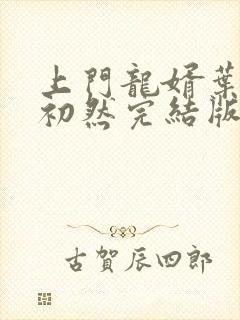 上門龍婿葉
初然完結版
古賀辰四郎